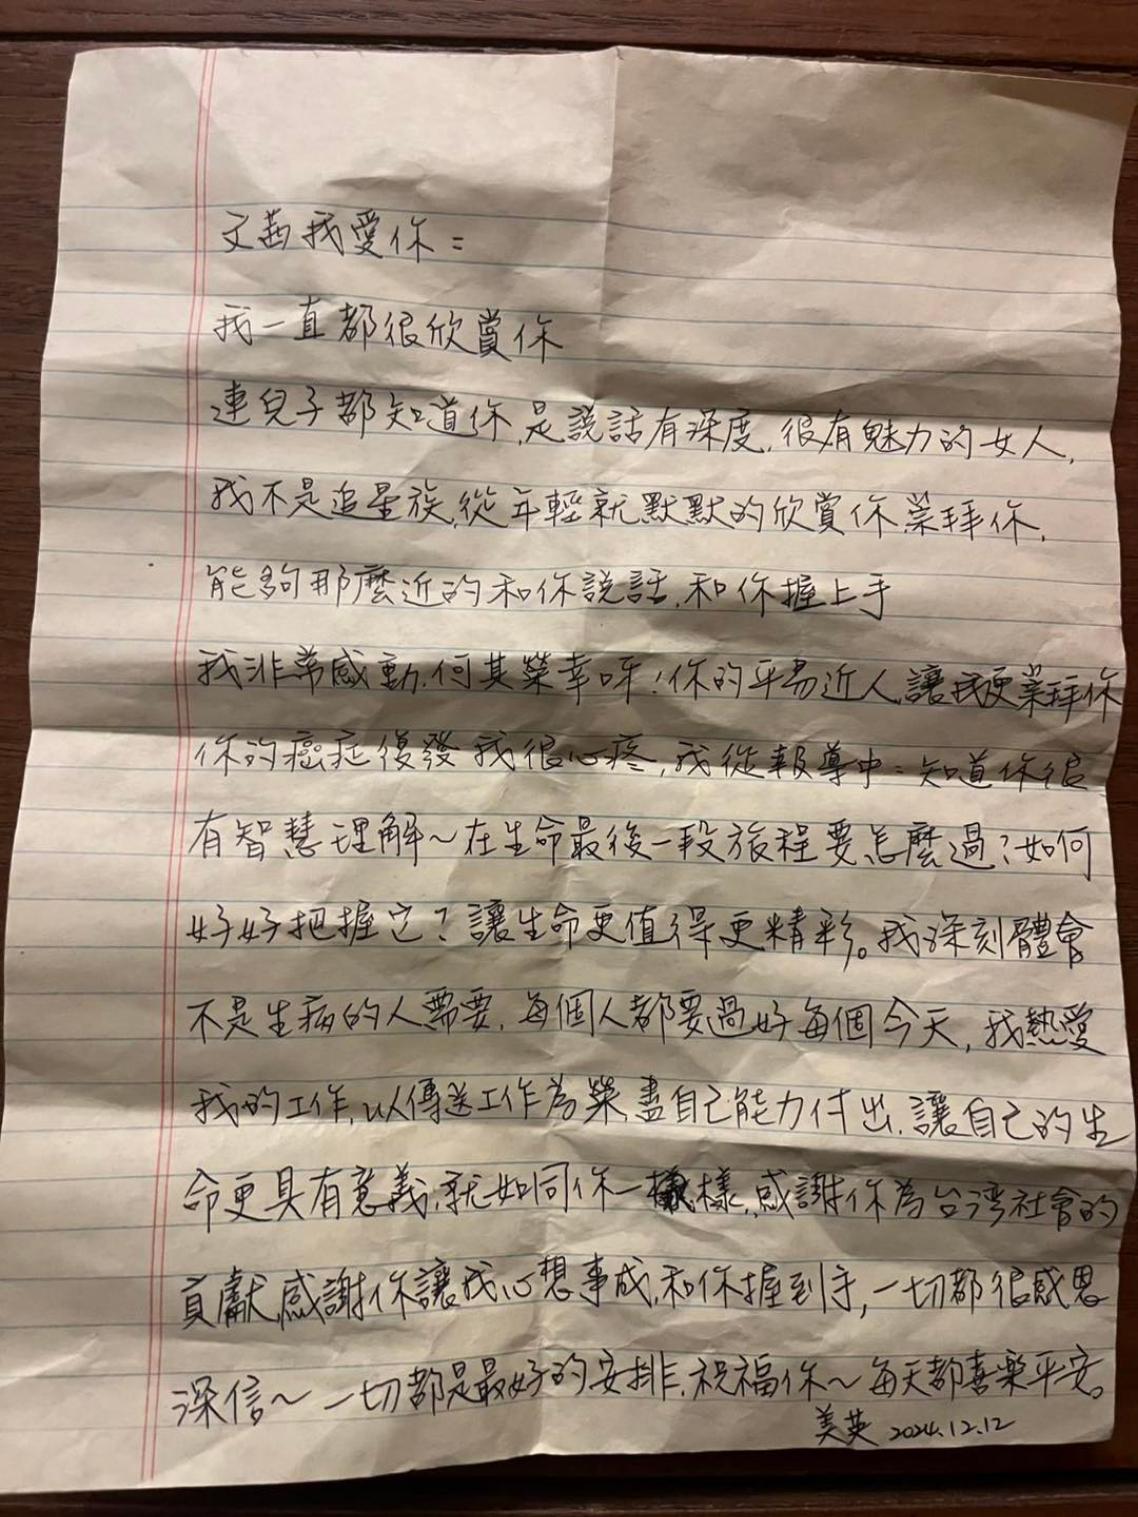 文茜我愛你：
我一直都很欣賞你
連兒子都知道你，是說話有深度，很有魅力的女人，
我不是追星族，從年輕就默默的欣賞你崇拜你，
能夠那麼近的和你說話，和你握上手
我非常感動，何其榮幸呀！你的平易近人讓我更崇拜你
你的癌症復發我很心疼，我從報導中：知道你很
有智慧理解～在生命最後一段旅程要怎麼過？如何
好好把握它？讓生命更值得更精彩。我深刻體會
不是生病的人需要，每個人都要過好每個今天，我熱愛
我的工作，以傳送工作為榮，盡自己能力付出，讓自己的生
命更具有意義，就如同你一樣，感謝你為台湾社會的
貢獻，感謝你讓我心想事成，和你握到手，一切都很感恩
深信～一切都是最好的安排，祝福你～每天都喜樂平安。
美英 2024.12.12